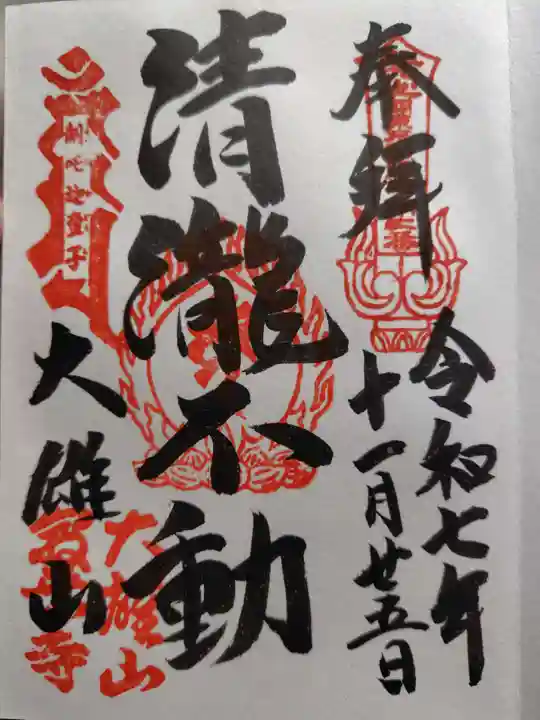 奉拝
令和七年
十一月廿五日
清瀧不動
大雄山
大雄山
最乗寺